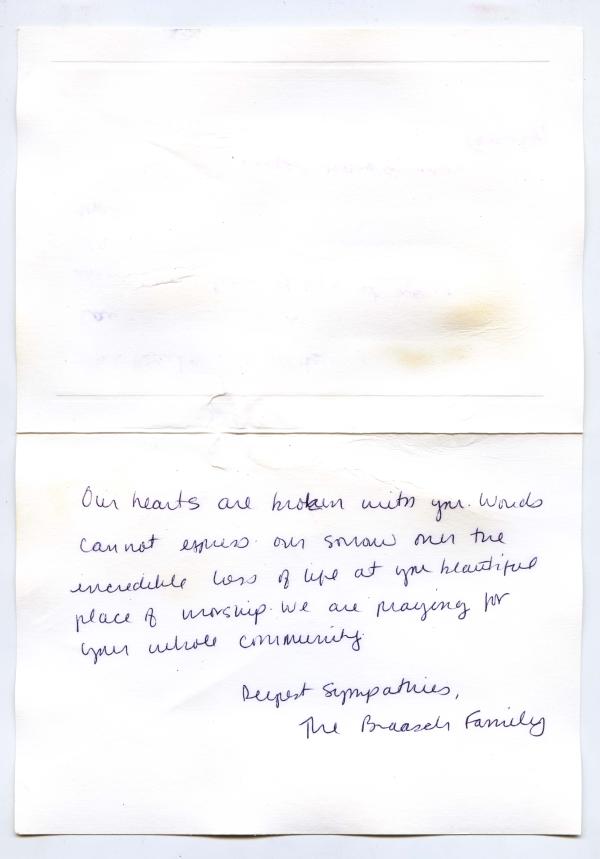 Our hearts are broken with you. Words
cannot express our sorrow over the
incredible loss of life at your beautiful
place of worship. We are praying for
your whole community.
Deepest Sympathies,
The Braasch Family